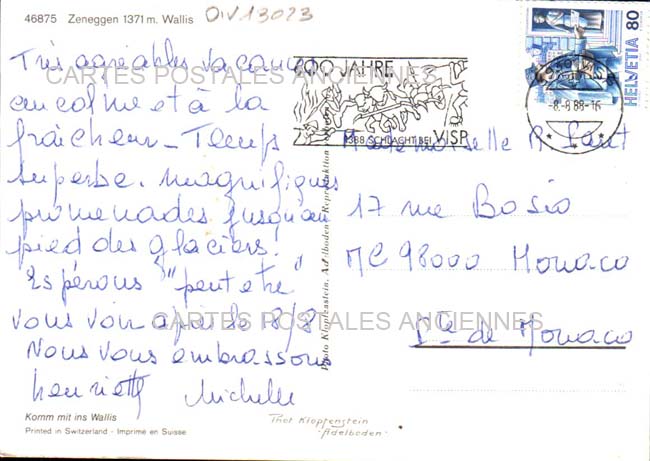 46875 Zeneggen 1371 m. Wallis
OIV13023
Très agréables vacances
au calme et à la
fraîcheur - Temps
superbe. magnifiques
promenades jusqu'au
pied des glaciers!
Espérons "peut etre"
vous voir après le 18/8
Nous vous embrassons
Henriette Michelle
Komm mit ins Wallis
Printed in Switzerland - Imprimé en Suisse
Photo Klopfenstein, Adelboden - Reproduktion
Phot Klopfenstein
-Adelboden-
600 JAHRE
1388 SCHLACHT BEI VISP
-8.-8.88-16
HELVETIA 80
Mademoiselle R
17 rue Bosio
MC 98000 Monaco
Pté de Monaco
CARTES POSTALES ANCIENNES
CARTES POSTALES ANCIENNES